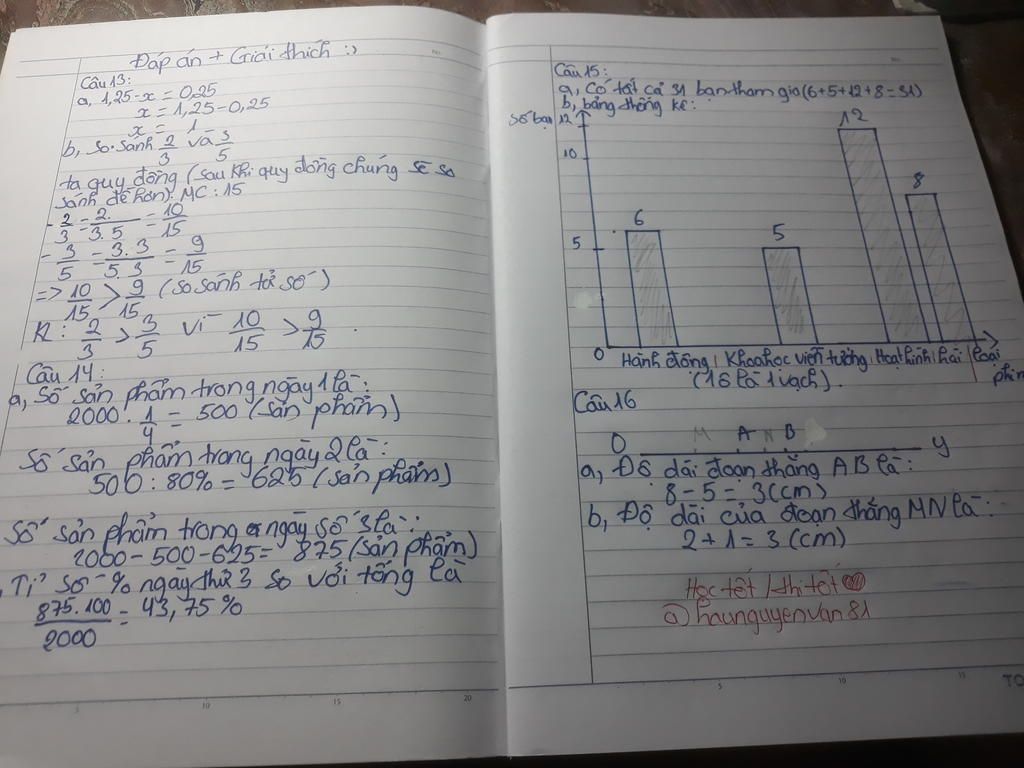 Đáp án + Giải thích :)
Câu 13:
a, 1,25 - x = 0,25
x = 1,25 - 0,25
x = 1
b, so sánh 2/3 và 3/5
ta quy đồng (sau khi quy đồng chúng sẽ so
sánh dễ hơn). MC: 15
- 2/3 = 2./3.5 = 10/15
- 3/5 = 3.3/5.3 = 9/15
=> 10/15 > 9/15 (so sánh tử số)
KL: 2/3 > 3/5 vì 10/15 > 9/15.
Câu 14:
a, Số sản phẩm trong ngày 1 là:
2000 . 1/4 = 500 (sản phẩm)
Số sản phẩm trong ngày 2 là:
500 : 80% = 625 (sản phẩm)
Số sản phẩm trong ngày số 3 là:
2000 - 500 - 625 = 875 (sản phẩm)
, Tỉ số % ngày thứ 3 so với tổng là
875.100/2000 = 43,75%
5 10 15 20
Câu 15:
a, Có tất cả 31 bạn tham gia (6+5+12+8=31)
b, bảng thống kê:
Số bạn
12
12
10
8
6
5
5
0
Hành động | Khoa học viễn tưởng | Hoạt hình | hài | loại
phim
(16 là 1 vạch).
Câu 16
O M A N B y
a, Độ dài đoạn thẳng AB là:
8 - 5 = 3 (cm)
b, Độ dài của đoạn thẳng MN là:
2 + 1 = 3 (cm)
Học tốt / thi tốt
@haunguyenvan81
5 10 15